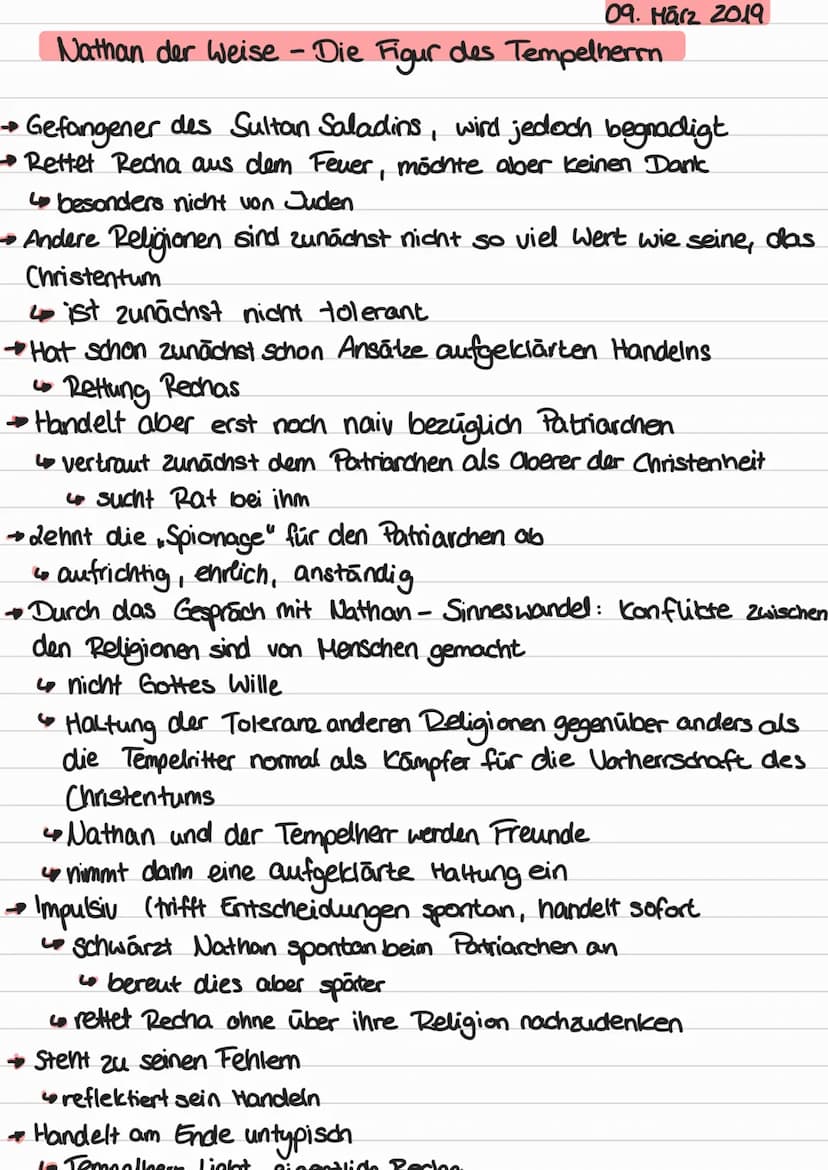 09. März 2019
Nathan der Weise - Die Figur des Tempelherrn
→ Gefangener des Sultan Saladins, wird jedoch begnadigt
→ Rettet Recha aus dem Feuer, möchte aber keinen Dank
↳ besonders nicht von Juden
→ Andere Religionen sind zunächst nicht so viel Wert wie seine, das
Christentum
↳ ist zunächst nicht tolerant
→ Hat schon zunächst schon Ansätze aufgeklärten Handelns
↳ Rettung Rechas
→ Handelt aber erst noch naiv bezüglich Patriarchen
↳ vertraut zunächst dem Patriarchen als Oberer der Christenheit
↳ sucht Rat bei ihm
→ Lehnt die „Spionage" für den Patriarchen ab
↳ aufrichtig, ehrlich, anständig
→ Durch das Gespräch mit Nathan - Sinneswandel: Konflikte zwischen
den Religionen sind von Menschen gemacht
↳ nicht Gottes Wille
↳ Haltung der Toleranz anderen Religionen gegenüber anders als
die Tempelritter normal als Kämpfer für die Vorherrschaft des
Christentums
↳ Nathan und der Tempelherr werden Freunde
↳ nimmt dann eine aufgeklärte Haltung ein
→ Impulsiv (trifft Entscheidungen spontan, handelt sofort
↳ schwärzt Nathan spontan beim Patriarchen an
↳ bereut dies aber später
↳ rettet Recha ohne über ihre Religion nachzudenken
→ Steht zu seinen Fehlern
↳ reflektiert sein Handeln
→ Handelt am Ende untypisch
↳ Tempelherr liebt eigentlich Recha